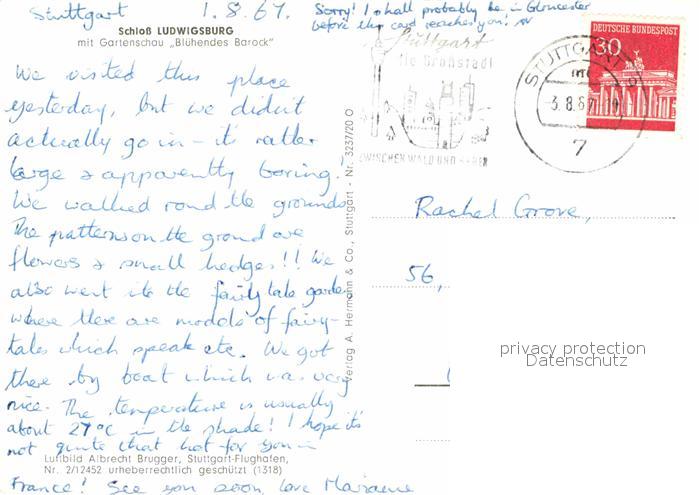 Stuttgart 1.8.67.
Sorry! I shall probably be in Gloucester
before this card reaches you!
Schloß LUDWIGSBURG
mit Gartenschau „Blühendes Barock"
We visited this place
yesterday, but we didn't
actually go in – it's rather
large & apparently boring!
We walked round the grounds
The patterns on the ground are
flowers & small hedges!! We
also went into the fairy tale garden
where there are models of fairy-
tales which speak etc. We got
there by boat which was very
nice. The temperature is usually
about 27°C in the shade! I hope it's
not quite that hot for you in
Luftbild Albrecht Brugger, Stuttgart-Flughafen,
Nr. 2/12452 urheberrechtlich geschützt (1318)
France! See you soon, love Marianne
Verlag A. Hermann & Co., Stuttgart - Nr. 3237/20 O
Stuttgart
die Großstadt
ZWISCHEN WALD UND REBEN
STUTTGART
-3.8.67
7
30
DEUTSCHE BUNDESPOST
Rachel Grove,
56,
privacy protection
Datenschutz